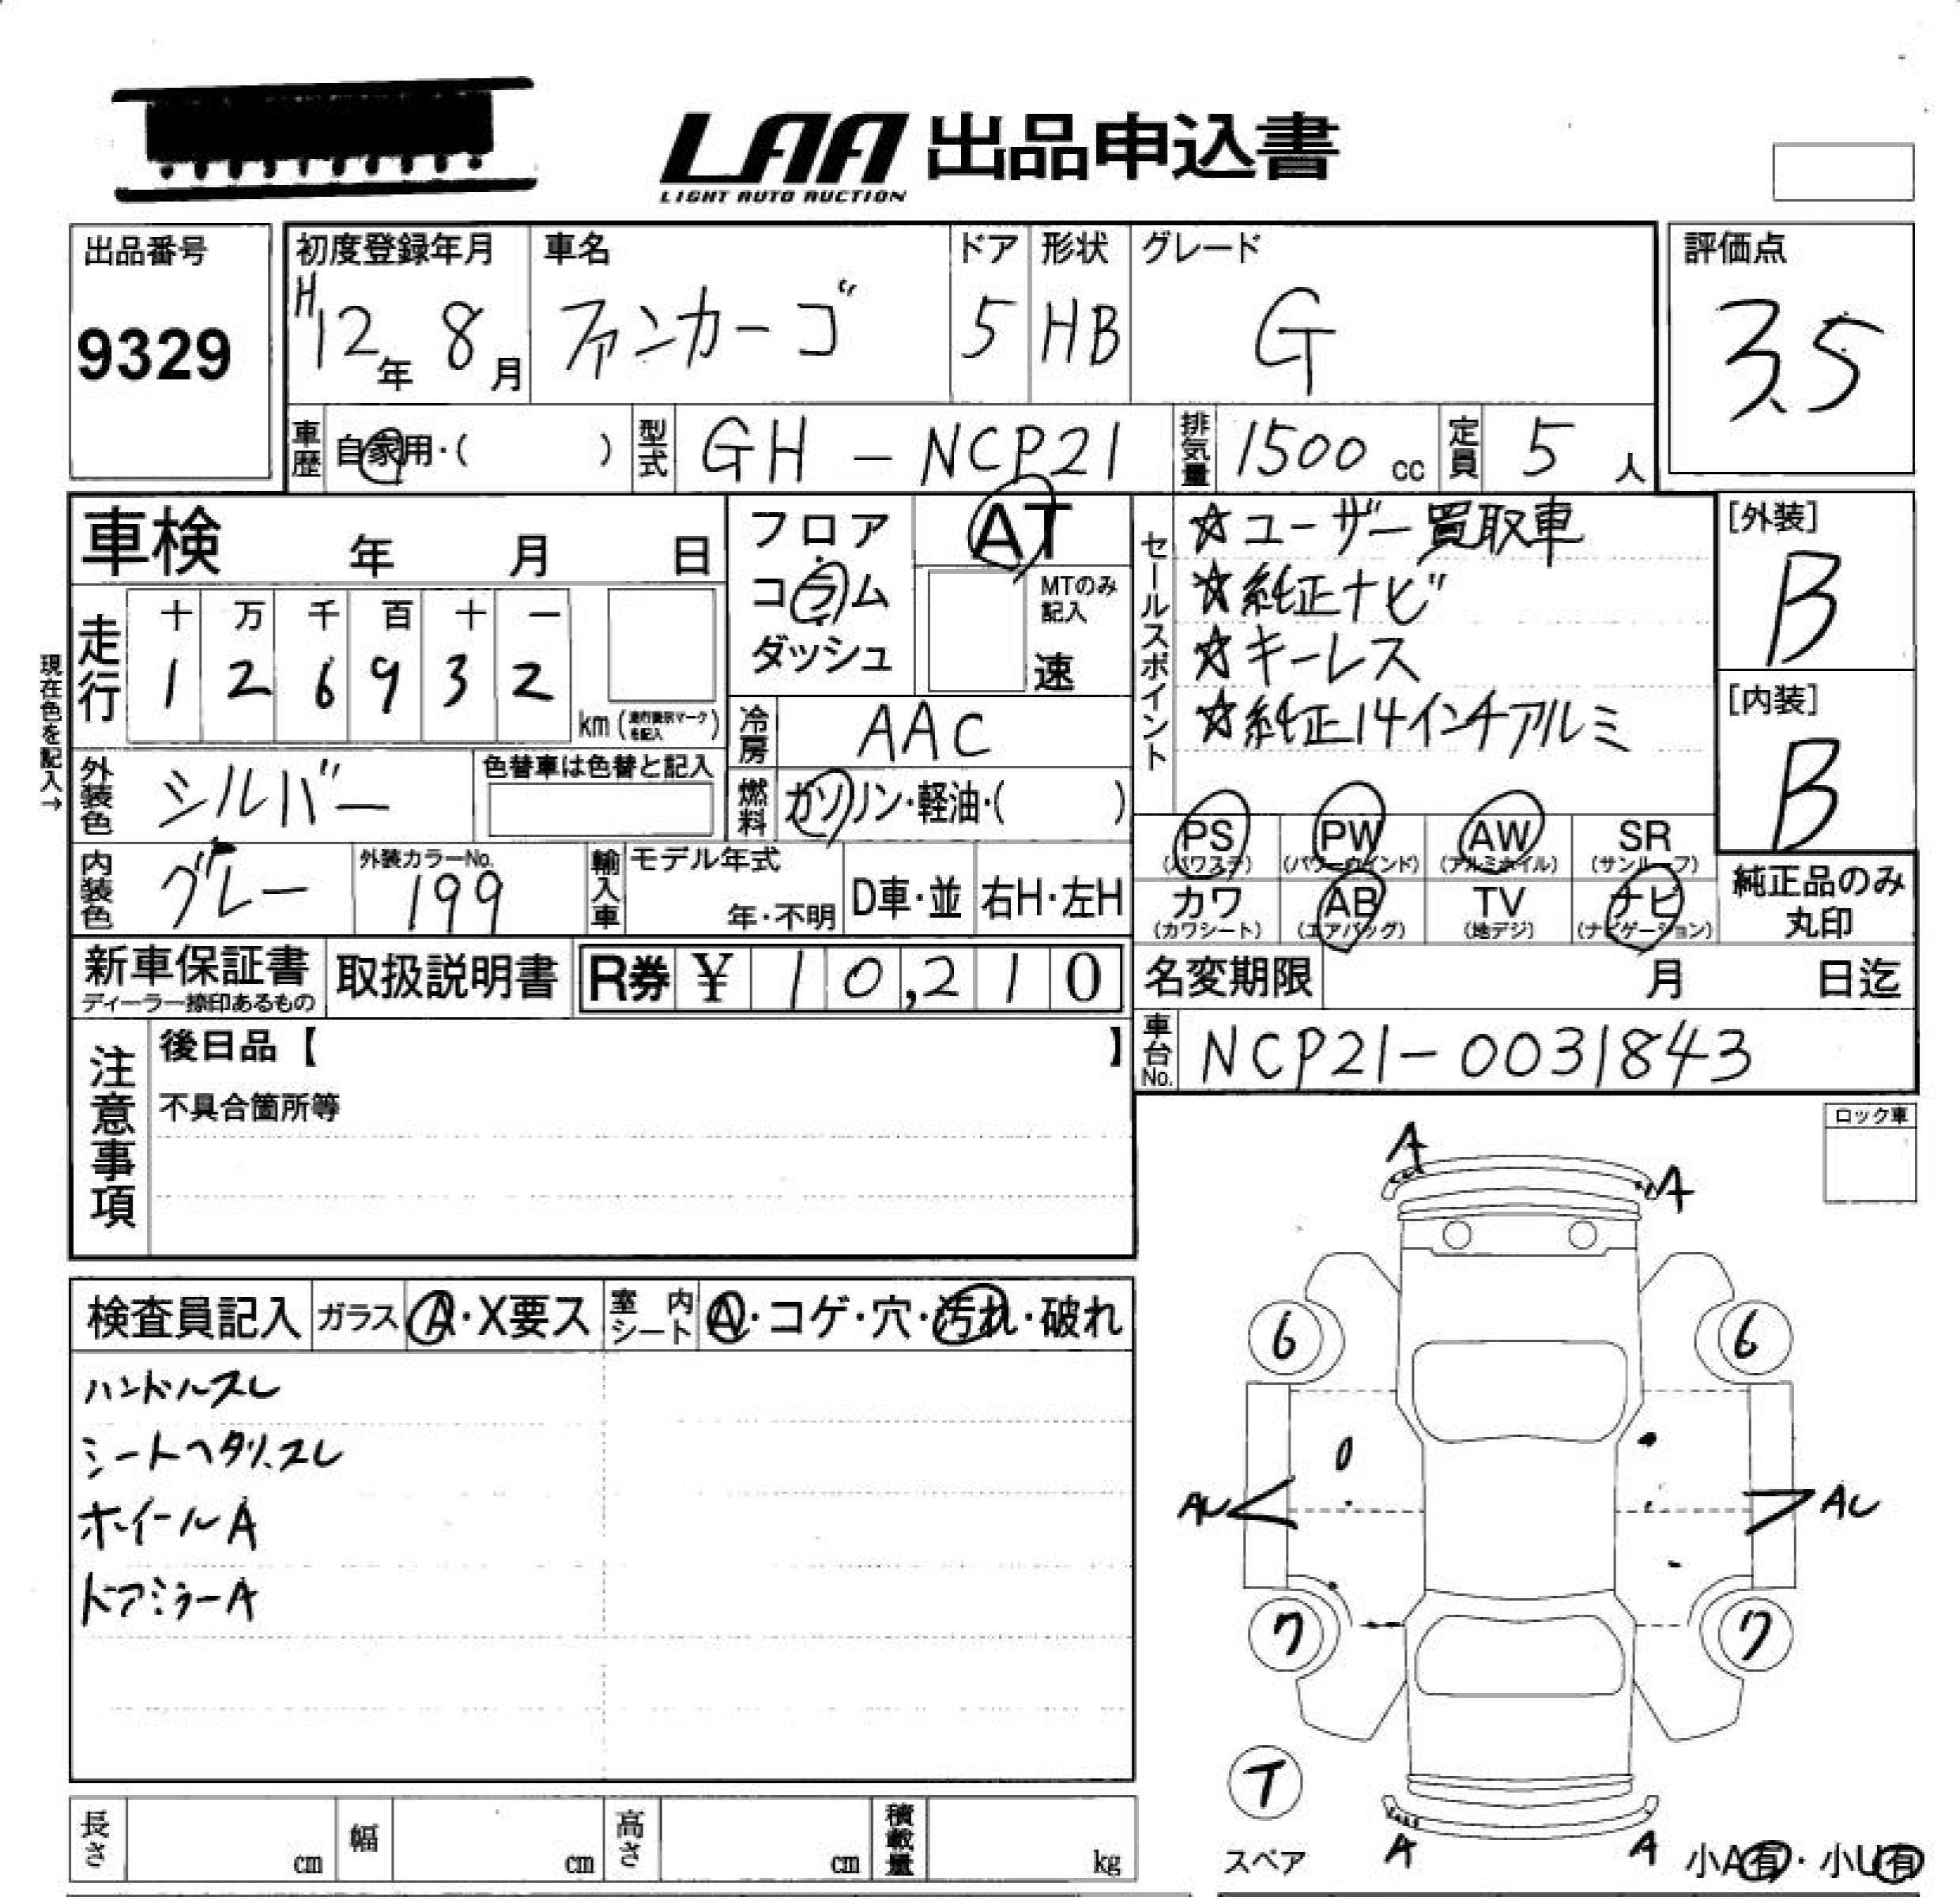 LAA 出品申込書
LIGHT AUTO AUCTION
出品番号
9329
初度登録年月
H12年 8月
車名
ファンカーゴ
ドア
5
形状
HB
グレード
G
評価点
3.5
車歴
自家用・( )
型式
GH - NCP21
排気量
1500 cc
定員
5 人
車検 年 月 日
フロア
コラム
ダッシュ
AT
MTのみ
記入
速
セールスポイント
☆ユーザー買取車
☆純正ナビ
☆キーレス
☆純正14インチアルミ
[外装]
B
[内装]
B
現在色を記入→
走行
十 万 千 百 十 一
1 2 6 9 3 2
km
冷房
AAC
外装色
シルバー
色替車は色替と記入
燃料
ガソリン・軽油・( )
PS PW AW SR
(パワステ) (パワーウインド) (アルミホイル) (サンルーフ)
カワ AB TV ナビ
(カワシート) (エアバッグ) (地デジ) (ナビゲーション)
純正品のみ
丸印
内装色
グレー
外装カラーNo.
199
輸入車
モデル年式
年・不明
D車・並
右H・左H
新車保証書
ディーラー捺印あるもの
取扱説明書
R券 ¥ 10,210
名変期限 月 日迄
車台No.
NCP21-0031843
注意事項
後日品【 】
不具合箇所等
ロック車
検査員記入
ガラス
A・X要ス
室内シート
A・コゲ・穴・汚れ・破れ
ハンドルスレ
シートヘタリ、スレ
ホイールA
ドアミラーA
A
A
6
6
AU
AU
7
7
T
スペア
A
A
小A有・小U有
長さ cm
幅 cm
高さ cm
積載量 kg